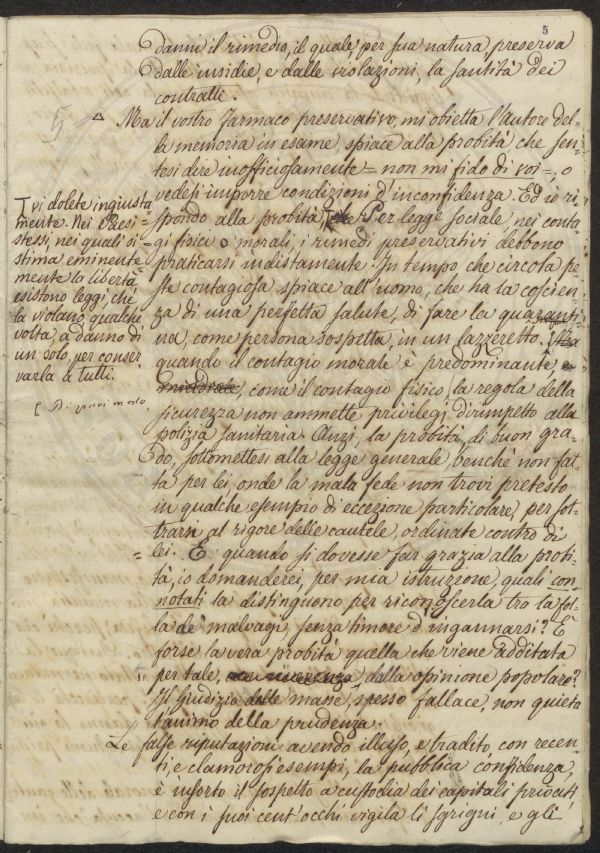 5
danni il rimedio, il quale, per sua natura, preserva
dalle insidie, e dalle violazioni, la santità dei
contratti.
Ma il vostro farmaco preservativo, mi obietta l'autore del=
la memoria in esame, spiace alla probità che sen=
tesi dire inofficiosamente = non mi fido di voi =, o
vedesi imporre condizioni d'inconfidenza. Ed io ri=
spondo alla probità, Per legge sociale nei conta=
gi fisici o morali, i rimedi preservativi debbono
praticarsi indistamente. In tempo, che circola pe=
ste contagiosa spiace all'uomo, che ha la coscien=
za di una perfetta salute, di fare la quaranti=
na, come persona sospetta, in un lazzeretto.
quando il contagio morale è predominante,
come il contagio fisico, la regola della
sicurezza non ammette privilegj dirimpetto alla
polizia sanitaria. Anzi, la probità, di buon gra=
do, sottomettesi alla legge generale, benchè non fat=
ta per lei, onde la mala fede non trovi pretesto
in qualche esempio di eccezione particolare, per sot=
trarsi al rigore delle cautele, ordinate contro di
lei. E quando si dovesse far grazia alla probi=
tà, io domanderei, per mia istruzione, quali con=
notati la distinguono per riconoscerla tra la fol=
la de' malvagi senza timore d'ingannarsi? È
forse la vera probità quella che viene additata
per tale, dalla opinione popolare?
Il Giudizio delle masse, spesso fallace, non quieta
l'animo della prudenza.
Le false riputazioni avendo illuso, e tradito, con recen=
ti, e clamorosi esempi, la pubblica confidenza,
è insorto il sospetto a custodia dei capitali privati,
e con i suoi cent'occhi vigila li scrigni, e gli
vi dolete ingiusta
mente. Nei Paesi=
stessi, nei quali si=
stima eminente
mente la libertà
esistono leggi, che
la violano, qualche
volta, a danno di
un solo, per conser
varla a tutti.